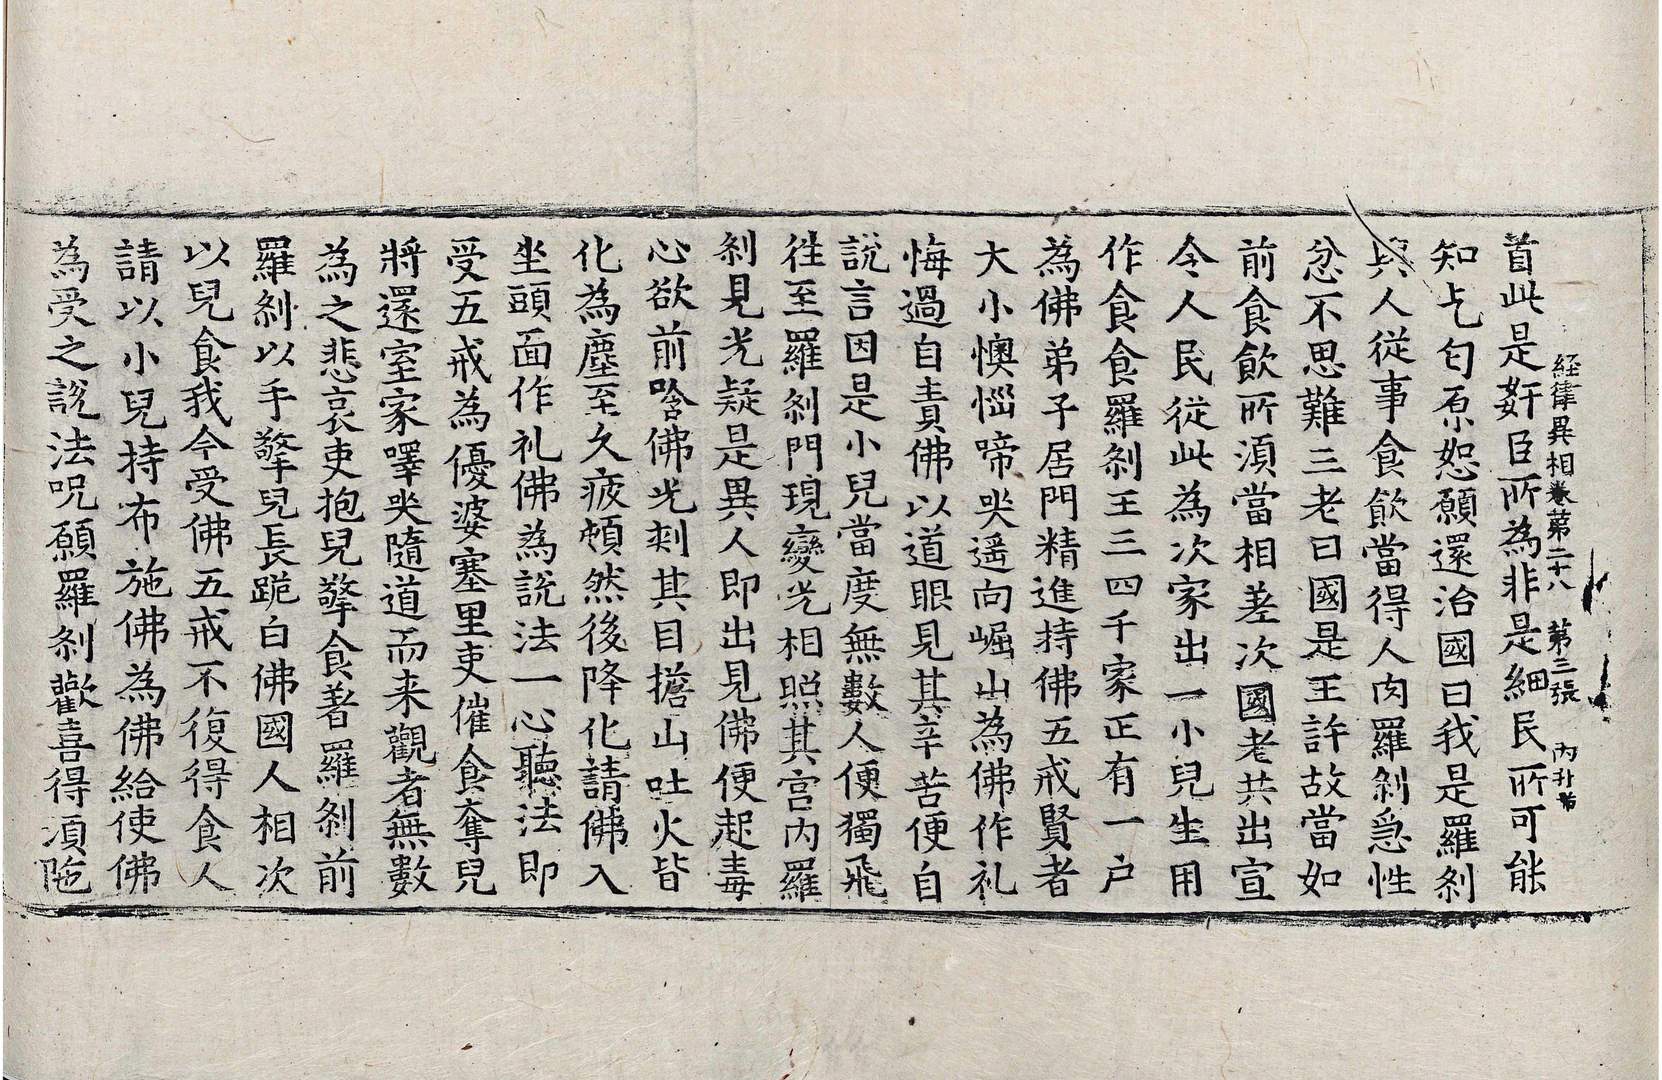 経律異相卷苐二十八 第三張 内
首此是姧臣所為非是細民所可能
知乞匂原恕願還治國曰我是羅刹
與人從事食飲當得人肉羅刹急性
忿不思難三老曰國是王許故當如
前食飲所湏當相差次國老共出宣
令人民從此為次家出一小兒生用
作食食羅刹王三四千家正有一户
為佛弟子居門精進持佛五戒賢者
大小懊惱啼哭遥向崛山為佛作礼
悔過自責佛以道眼見其辛苦便自
說言因是小兒當度無數人便獨飛
徃至羅刹門現變光相照其宫内羅
刹見光疑是異人即出見佛便起毒
心欲前唅佛光刺其目擔山吐火皆
化為塵至久疲頓然後降化請佛入
坐頭面作礼佛為說法一心聽法即
受五戒為優婆塞里吏催食奪兒
將還室家嘷哭隨道而来觀者無數
為之悲哀吏抱兒擎食著羅刹前
羅刹以手擎兒長跪白佛國人相次
以兒食我今受佛五戒不復得食人
請以小兒持布施佛為佛給使佛
為受之說法呪願羅刹歡喜得湏陁